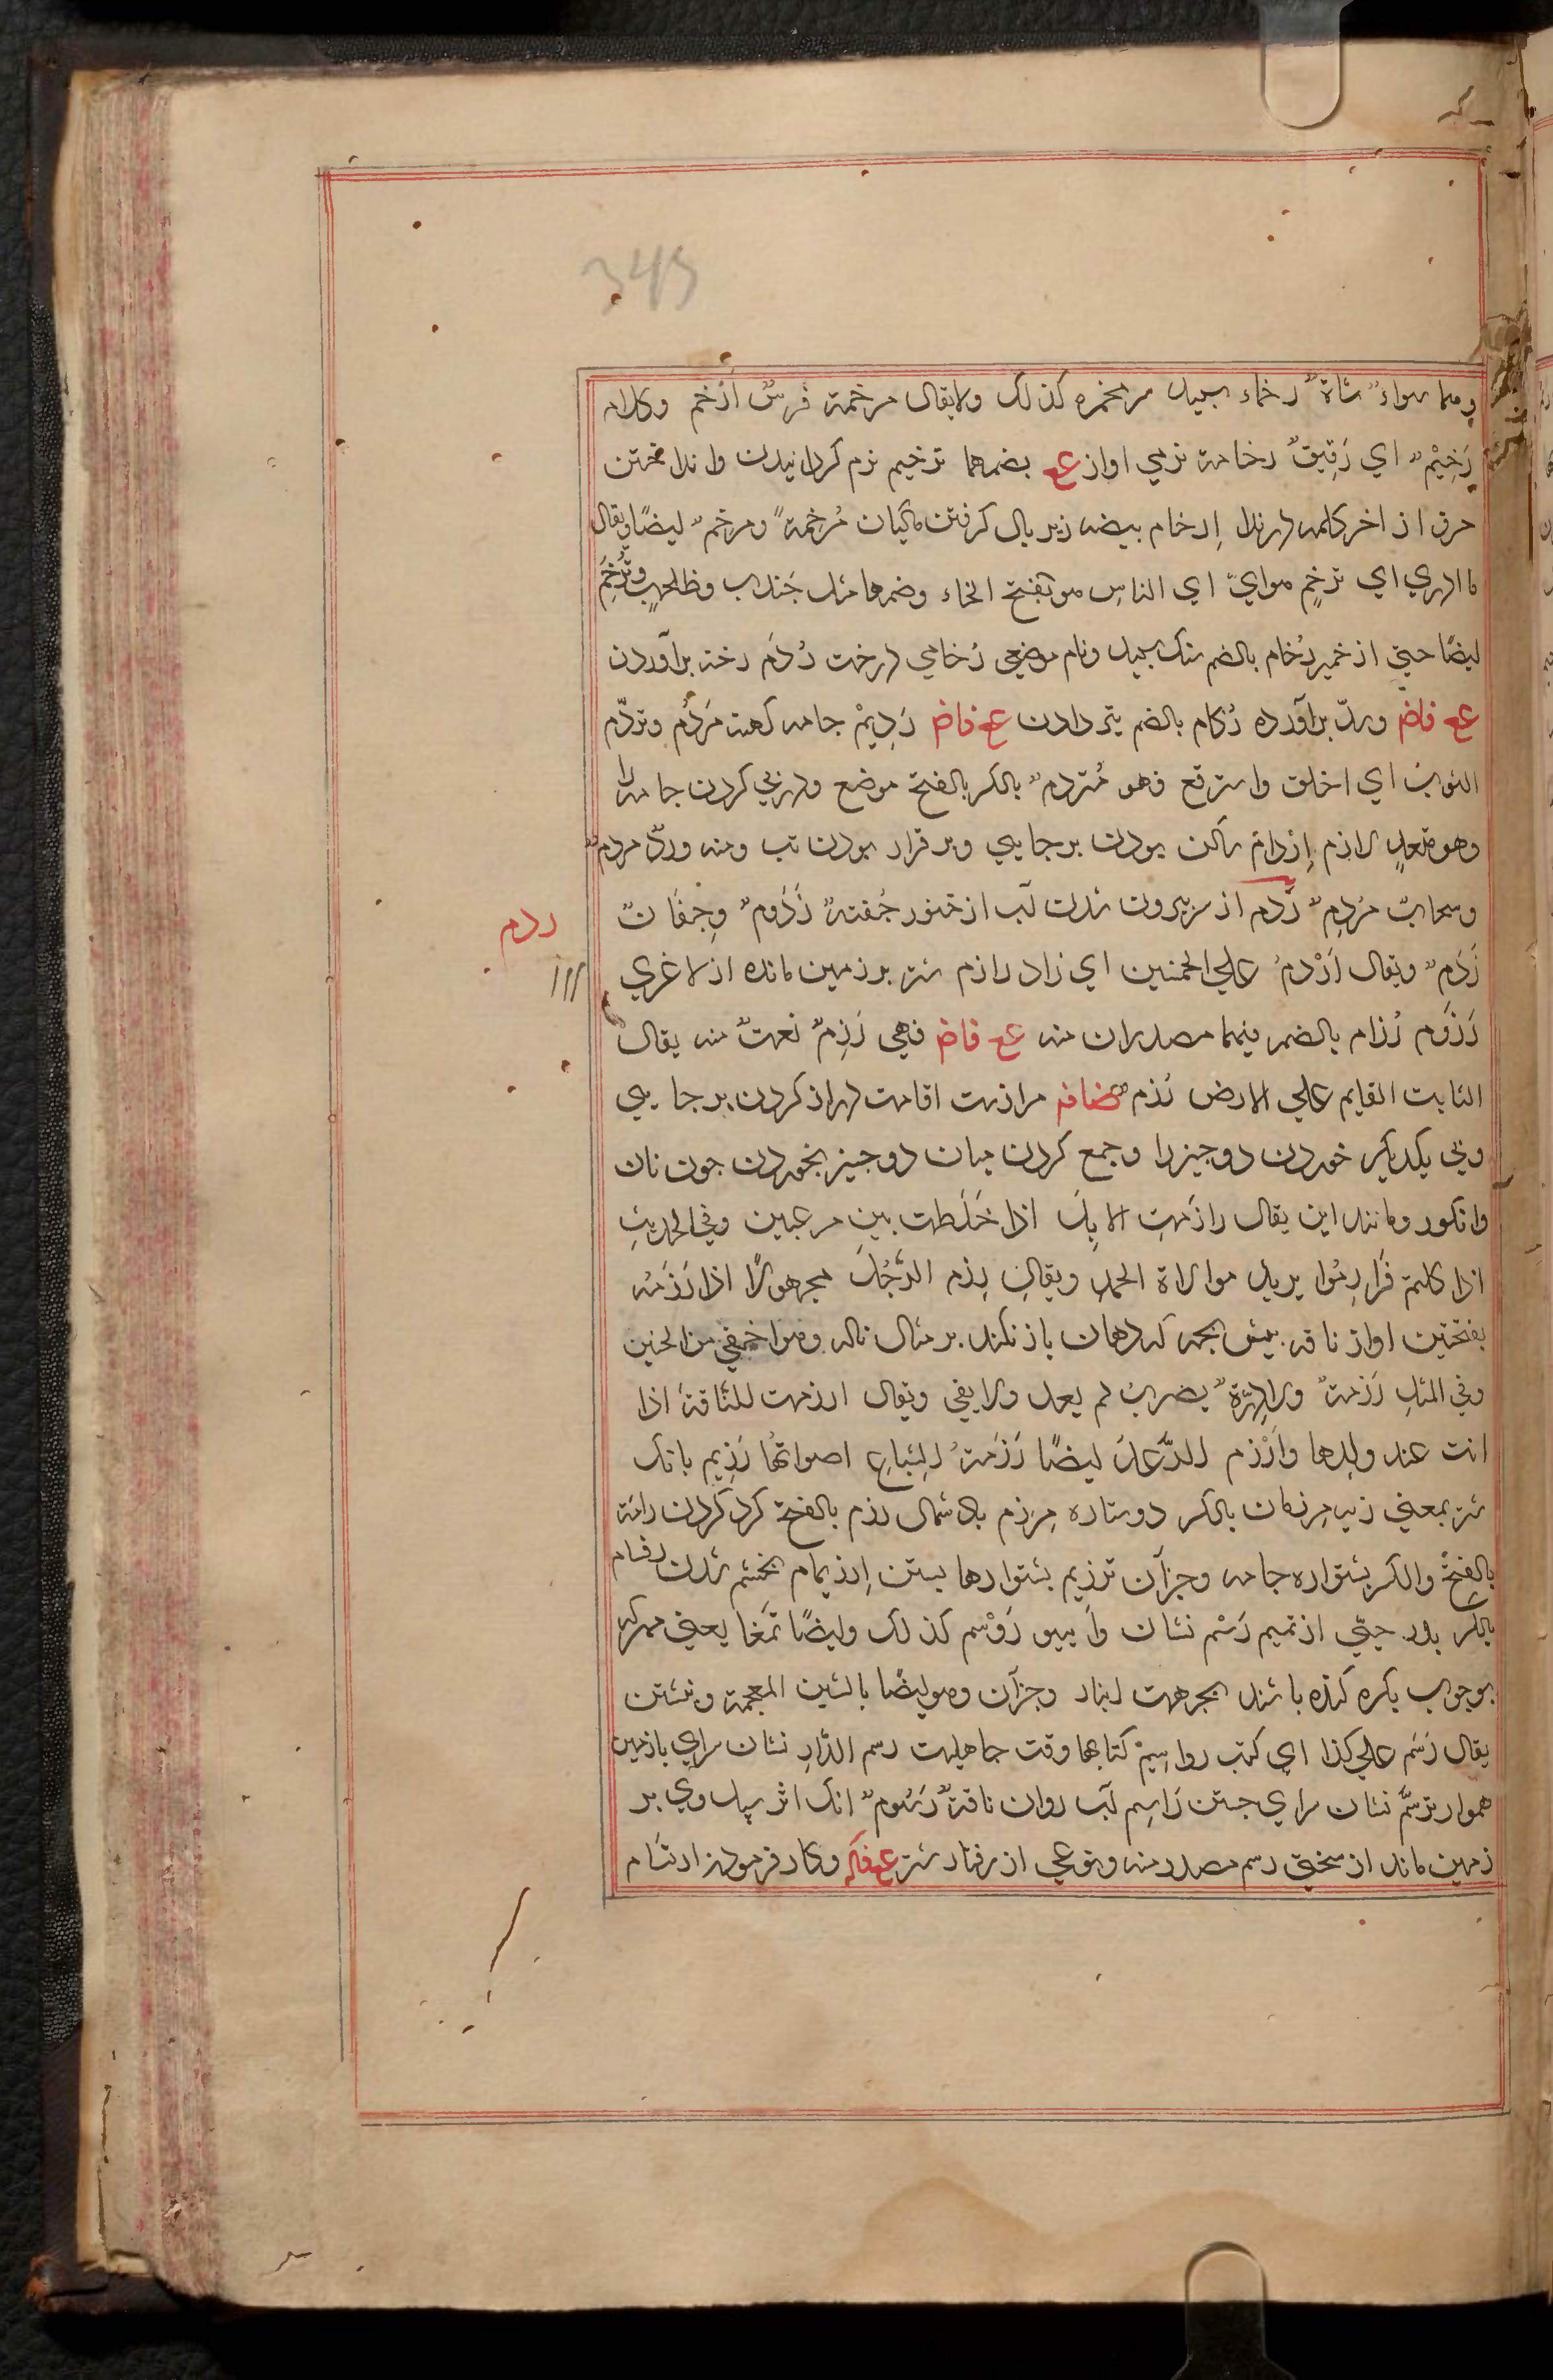 345
وهما سواء شاة رخماء سپید سر مخمره كذلك ولا يقال مرخمة فرس أرخم وكلام
رَخِيْمٌ اي رَقِيقٌ رخامة نرمي اواز عع بضمهما ترخيم نرم كردانيدن وانداختن
حرف از اخر كلمه در ندا إرخام بيضه زير بال كرفتن ماكيان مُرخِمة ومرخم ليضًا ويقال
ما ادري اي ترخم هواي اي الناس هو بفتح الخاء وضمها مثل جندب وطحلب وتُرخم
ليضًا حتي از خمير رُخام بالضم سنك سپيد ونام موضعي رُخامي درخت رُدَم رخنه برآوردن
عع فاض وسد برآورده رُكام بالضم تيز دادن عع فاض رَدِيمْ جامه كهنه مَردُم وتردّم
الثوب اي اخلق واسترقع فهو مُتردم بالكسر بالفتح موضع ودرزي كردن جامه را
وهو متعدٍ لازم إردام ساكن بودن برجايي وبر قرار بودن تب ومنه وردٌ مردم
وسحاب مُردِم رَدم از سر بيرون شدن آب از خنور جُفتة رَذَوم وجِفَان
رَذَم ويقال أرْذم علي الخمسين اي زاد رازم شتر بر زمين مانده از لاغري
رَزوم رُزام بالضم فيهما مصدران منه عع فاض فهي رَزِم نعت منه يقال
الثابت القايم علي الارض رُزم عضافه مرازمت اقامت دراز كردن برجايي
وبي يكديكر خوردن دو چيز را وجمع كردن ميان دو چيز بخوردن چون نان
وانكور ومانند اين يقال رازمتِ الابِلَ اذا خَلَطت بين مرعيين وفي الحديث
اذا كلتم فرازمُوا يريد موالاة الحمد ويقال رزم الرَّجُلَ مجهولًا اذا رَزَمَة
بفتحتين اواز ناقه بپيش بچه كه دهان باز نكند بر مثال ناله وهو اخفي من الحنين
وفي المثل رَزمة ولا دِرّة يضرب لم يعد ولا يفي ويقال ارزمت للناقة اذا
انت عند ولدها وأرْزم الرَّعد ليضًا رَزَمة السِّباع اصواتُها رَزيم بانك
شتر بمعني زيب مرزمان بالكسر دو ستاره مِرزم باد شمال رزم بالفتح كرد كردن رزمة
بالفتح والكسر پشتواره جامه وجزآن ترزيم پشتوارها بستن إرزيمام بخشم شدن رزام
بالكسر پدر حيّي از تميم رَسْم نشان وآيين رَوْسم كذلك وليضًا تمغا يعني مهر كه
بر چوب بكره كنده باشند بجهت انبار وجزآن وهو ليضًا بالشين المعجمة ونبشتن
يقال رَسَم علي كذا اي كتب رواسيمْ كتابها وقت جاهليت رسم الدّارِ نشان سراي با زمين
هموار ترسُّم نشان سراي جستن رَاسِم آب روان ناقة رَسُوم آنك اثر سپل وي بر
زمين ماند از سختي رسم مصدر منه ونوعي از رفتار شتر عع فكه وكار فرمودن ارتسام
ردم